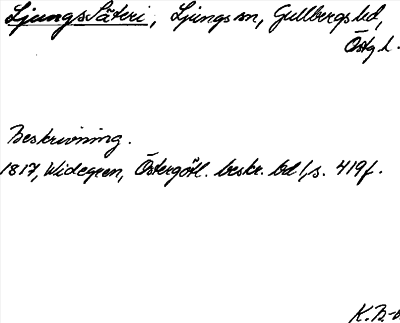 Ljungs Säteri, Ljungs sn, Gullbergs hd,
Östg l.
Beskrivning.
1817, Widegren, Östergötl. beskr. bd 1, s. 419 f.
K.B-